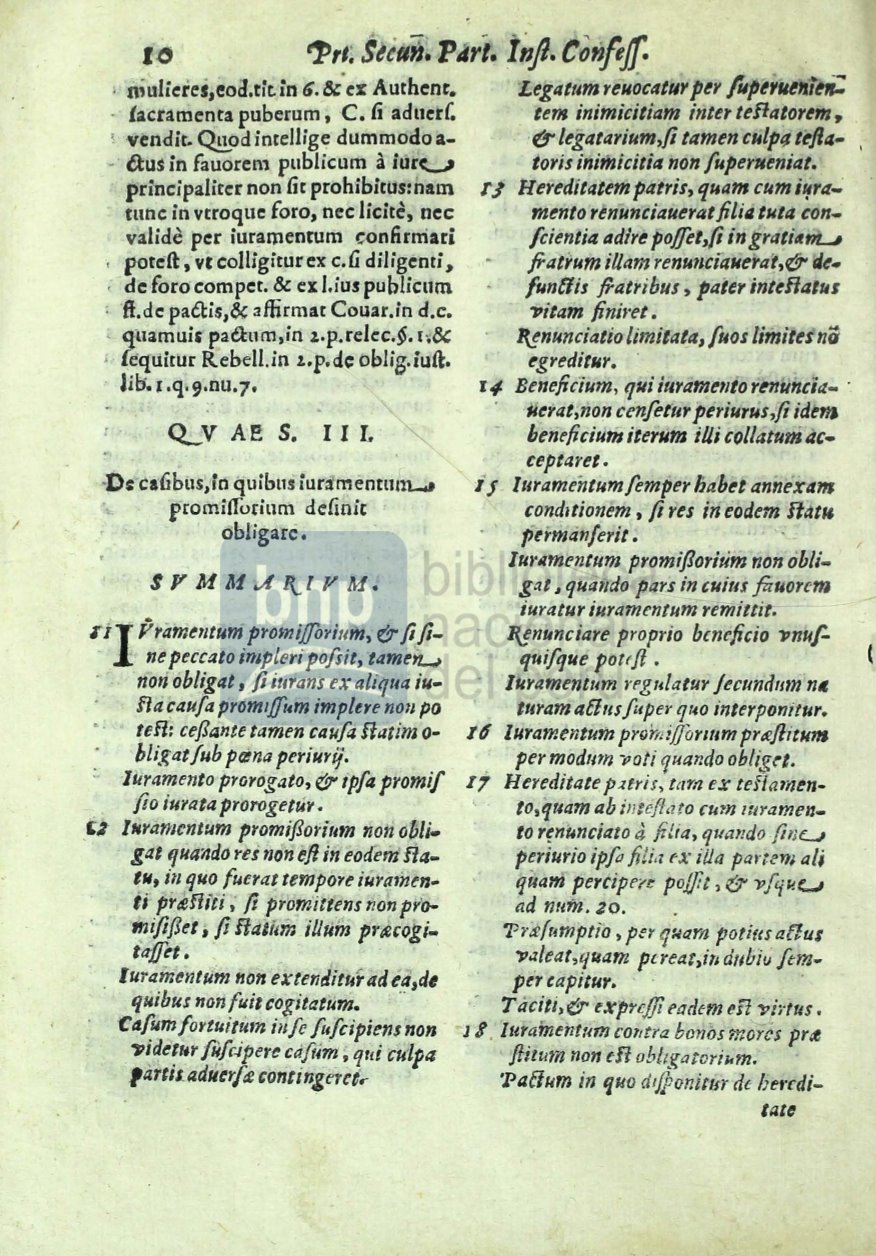 10 Prt. Secun̄. Part. Inſt. Confeſſ.
mulieres,eod.tit.in 6. & ex Authent.
ſacramenta puberum, C. ſi aduerſ.
vendit. Quod intellige dummodo a-
ctus in fauorem publicum à iure
principaliter non ſit prohibitus:nam
tunc in vtroque foro, nec licitè, nec
validè per iuramentum confirmari
poteſt, vt colligitur ex c.ſi diligenti,
de foro compet. & ex l.ius publicum
ff.de pactis,& affirmat Couar.in d.c.
quamuis pactum,in 2.p.relec.§.1.&
ſequitur Rebell.in 2.p.de oblig.iuſt.
lib.1.q.9.nu.7.
QVAES. III.
De caſibus,in quibus iuramentum
promiſſorium deſinit
obligare.
SVMMARIVM.
11 IVramentum promiſſorium, & ſi ſi-
ne peccato impleri poſsit, tamen
non obligat, ſi iurans ex aliqua iu-
ſta cauſa promiſſum implere non po
teſt: ceßante tamen cauſa ſtatim o-
bligat ſub pœna periurij.
Iuramento prorogato, & ipſa promiſ
ſio iurata prorogetur.
12 Iuramentum promißorium non obli-
gat quando res non eſt in eodem ſta-
tu, in quo fuerat tempore iuramen-
ti præſtiti, ſi promittens non pro-
miſißet, ſi ſtatum illum præcogi-
taſſet.
Iuramentum non extenditur ad ea,de
quibus non fuit cogitatum.
Caſum fortuitum in ſe ſuſcipiens non
videtur ſuſcipere caſum, qui culpa
partis aduerſæ contingeret.
Legatum reuocatur per ſuperuenien-
tem inimicitiam inter teſtatorem,
& legatarium,ſi tamen culpa teſta-
toris inimicitia non ſuperueniat.
13 Hereditatem patris, quam cum iura-
mento renunciauerat filia tuta con-
ſcientia adire poſſet,ſi in gratiam
fratrum illam renunciauerat,& de-
functis fratribus, pater inteſtatus
vitam finiret.
Renunciatio limitata, ſuos limites nõ
egreditur.
14 Beneficium, qui iuramento renuncia-
uerat,non cenſetur periurus,ſi idem
beneficium iterum illi collatum ac-
ceptaret.
15 Iuramentum ſemper habet annexam
conditionem, ſi res in eodem ſtatu
permanſerit.
Iuramentum promißorium non obli-
gat, quando pars in cuius fauorem
iuratur iuramentum remittit.
Renunciare proprio beneficio vnuſ-
quiſque poteſt.
Iuramentum regulatur ſecundum na
turam actus ſuper quo interponitur.
16 Iuramentum promiſſorium præſtitum
per modum voti quando obliget.
17 Hereditate patris, tam ex teſtamen-
to,quam ab inteſtato cum iuramen-
to renunciato à filia, quando ſine
periurio ipſa filia ex illa partem ali
quam percipere poſſit, & vſque
ad num. 20.
Præſumptio, per quam potius actus
valeat,quam pereat,in dubio ſem-
per capitur.
Taciti,& expreſſi eadem eſt virtus.
18 Iuramentum contra bonos mores præ
ſtitum non eſt obligatorium.
Pactum in quo diſponitur de heredi-
tate
bnp